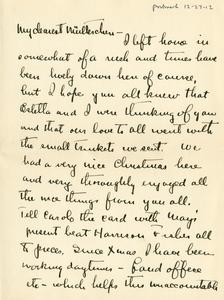 postmark 12-27-12
My dearest Mütterchen –
I left home in
somewhat of a rush and times have
been lively down here of course,
but I hope you all knew that
Estella and I were thinking of you
and that our love to all went with
the small trinkets we sent. We
had a very nice Christmas here
and very thoroughly enjoyed all
the nice things from you all.
Tell Carol the card with Mays'
present beat Harrison Fisher all
to pieces. Since Xmas I have been
working daytimes –
etc – which helps this unaccountable